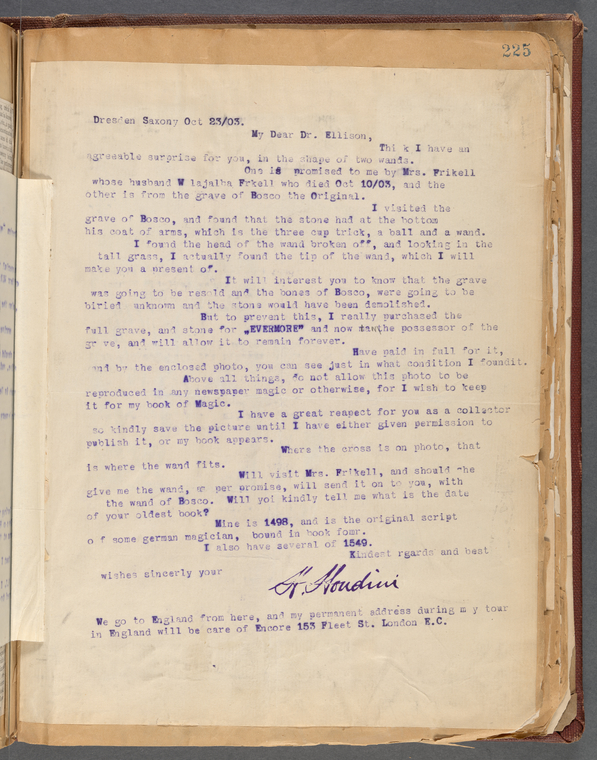 225
Dresden Saxony Oct 23/03.
My Dear Dr. Ellison,
Thi k I have an
agreeable surprise for you, in the shape of two wands.
One is promised to me by Mrs. Frikell
whose husband W lajalha Frkell who died Oct 10/03, and the
other is from the grave of Bosco the Original.
I visited the
grave of Bosco, and found that the stone had at the bottom
his coat of arms, which is the three cup trick, a ball and a wand.
I found the head of the wand broken off, and looking in the
tall grass, I actually found the tip of the wand, which I will
make you a present of.
It will interest you to know that the grave
was going to be resold and the bones of Bosco, were going to be
biried unknown and the stone would have been demolished.
But to prevent this, I really purchased the
full grave, and stone for „EVERMORE" and now the possessor of the
gr ve, and will allow it to remain forever.
Have paid in full for it,
and by the enclosed photo, you can see just in what condition I foundit.
Above all things, do not allow this photo to be
reproduced in any newspaper magic or otherwise, for I wish to keep
it for my book of Magic.
I have a great reapect for you as a collector
so kindly save the picture until I have either given permission to
publish it, or my book appears.
Where the cross is on photo, that
is where the wand fits.
Will visit Mrs. Frikell, and should she
give me the wand, as per promise, will send it on to you, with
the wand of Bosco. Will yoi kindly tell me what is the date
of your oldest book?
Mine is 1498, and is the original script
o f some german magician, bound in book fomr.
I also have several of 1549.
Kindest rgards and best
wishes sincerly your
H. Houdini
We go to England from here, and my permanent address during m y tour
in England will be care of Encore 153 Fleet St. London E.C.